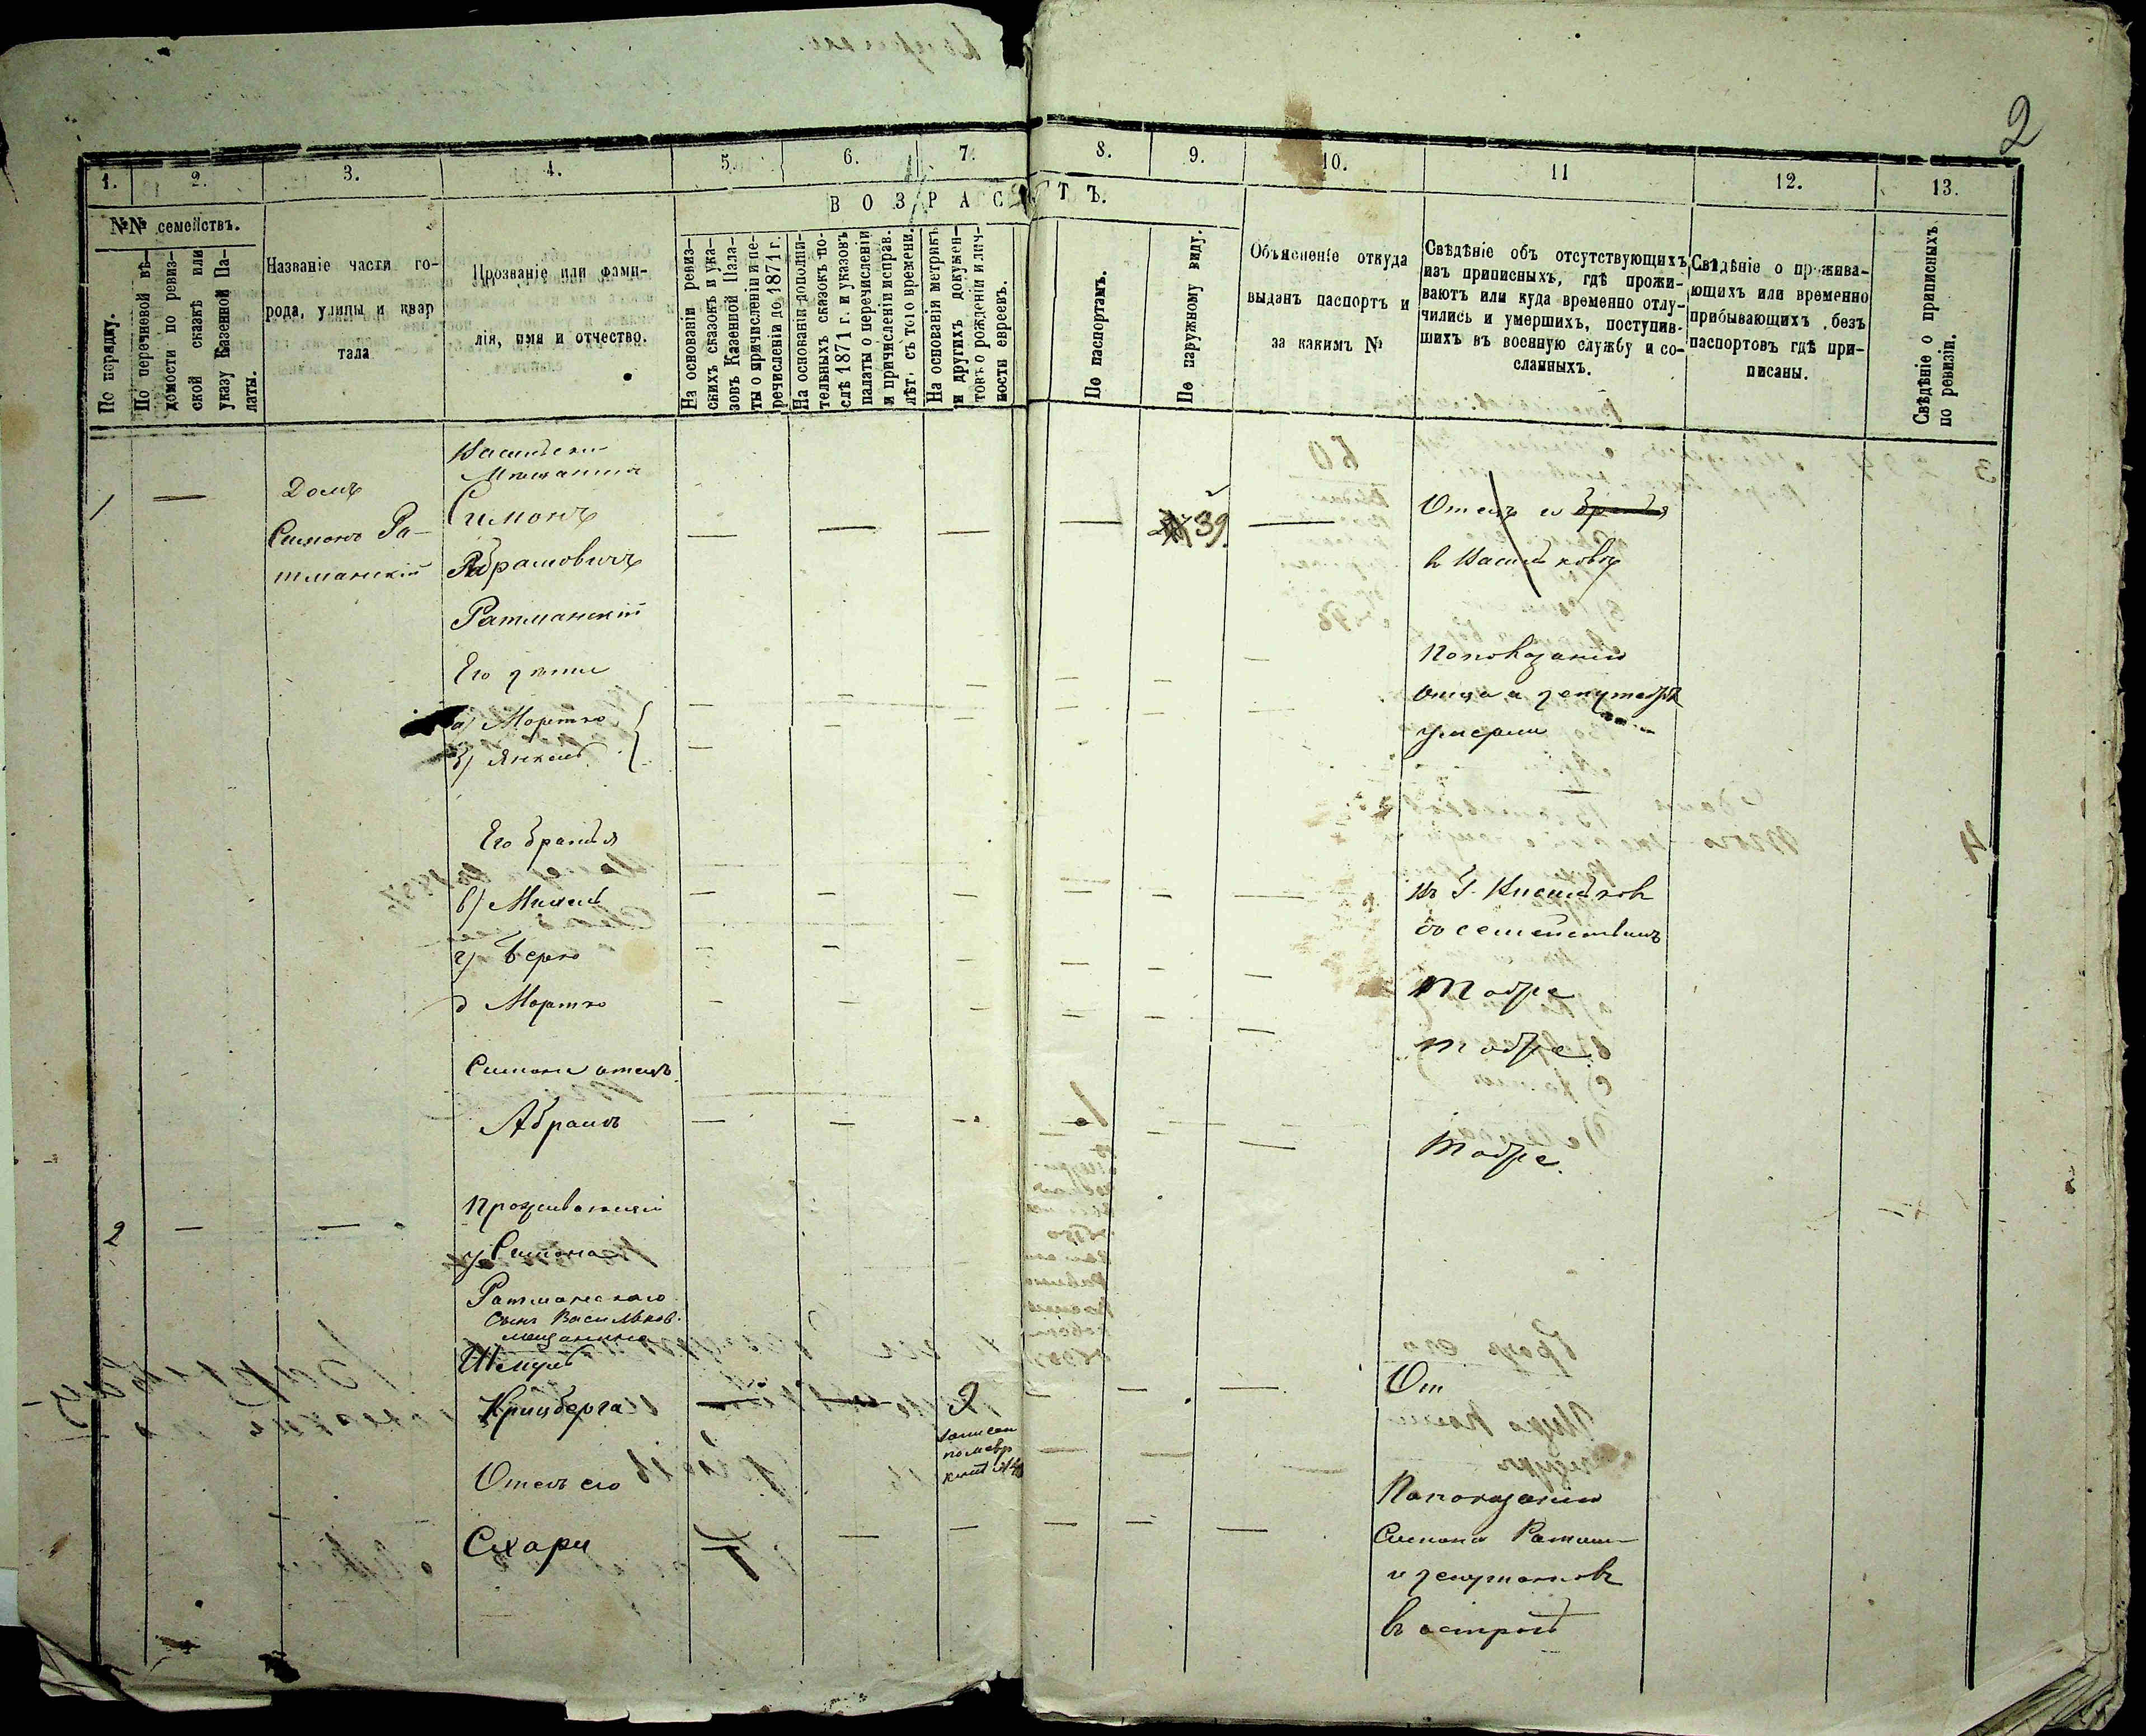 2
1.
2.
3.
4.
5.
6.
7.
8.
9.
10.
11
12.
13.
№№ семействъ.
По порядку.
По перечневой вѣ-
домости по ревиз-
ской сказкѣ или
указу Казенной Па-
латы.
Названіе части го-
рода, улицы и квар
тала
Прозваніе или фами-
лія, имя и отчество.
ВОЗРАСТЪ.
На основаніи ревиз-
скихъ сказокъ и ука-
зовъ Казенной Пала-
ты о причисленіи и пе-
речисленіи до 1871 г.
На основаніи дополни-
тельныхъ сказокъ по-
слѣ 1871 г. и указовъ
палаты о перечисленіи
и причисленіи исправ.
лѣт. съ того времени.
На основаніи метрикъ
и другихъ докумен-
товъ о рожденіи и лич-
ности евреевъ.
По паспортамъ.
По наружному виду.
Объясненіе откуда
выданъ паспортъ и
за какимъ №
Свѣдѣніе объ отсутствующихъ
изъ приписныхъ, гдѣ прожи-
ваютъ или куда временно отлу-
чились и умершихъ, поступив-
шихъ въ военную службу и со-
сланныхъ.
Свѣдѣніе о прожива-
ющихъ или временно
прибывающихъ безъ
паспортовъ гдѣ при-
писаны.
Свѣдѣніе о приписныхъ
по ревизіи.
1
Домъ
Симонъ Ра-
тманскій
Мѣщанинъ
Симонъ
Абрамовичъ
Ратманскій
39.
Отецъ и братья
в Васильковѣ
Его дѣти
а) Мортко
б) Янкель
По показанію
отца и депутатовъ
умерли
Его братья
в) Михель
г) Берко
д Мортко
въ Г. Васильков
со семействамъ
тоже
тоже
Симона отецъ
Абрамъ
тоже.
2
Проживающій
у Симона
Ратманского
Сынъ Васильков.
мещанина
Шмуль
Крицберга
2
записан
по метр
книг
От
Отецъ его
Схари
По показанію
Симона Ратман-
и депутатовъ
въ острогѣ